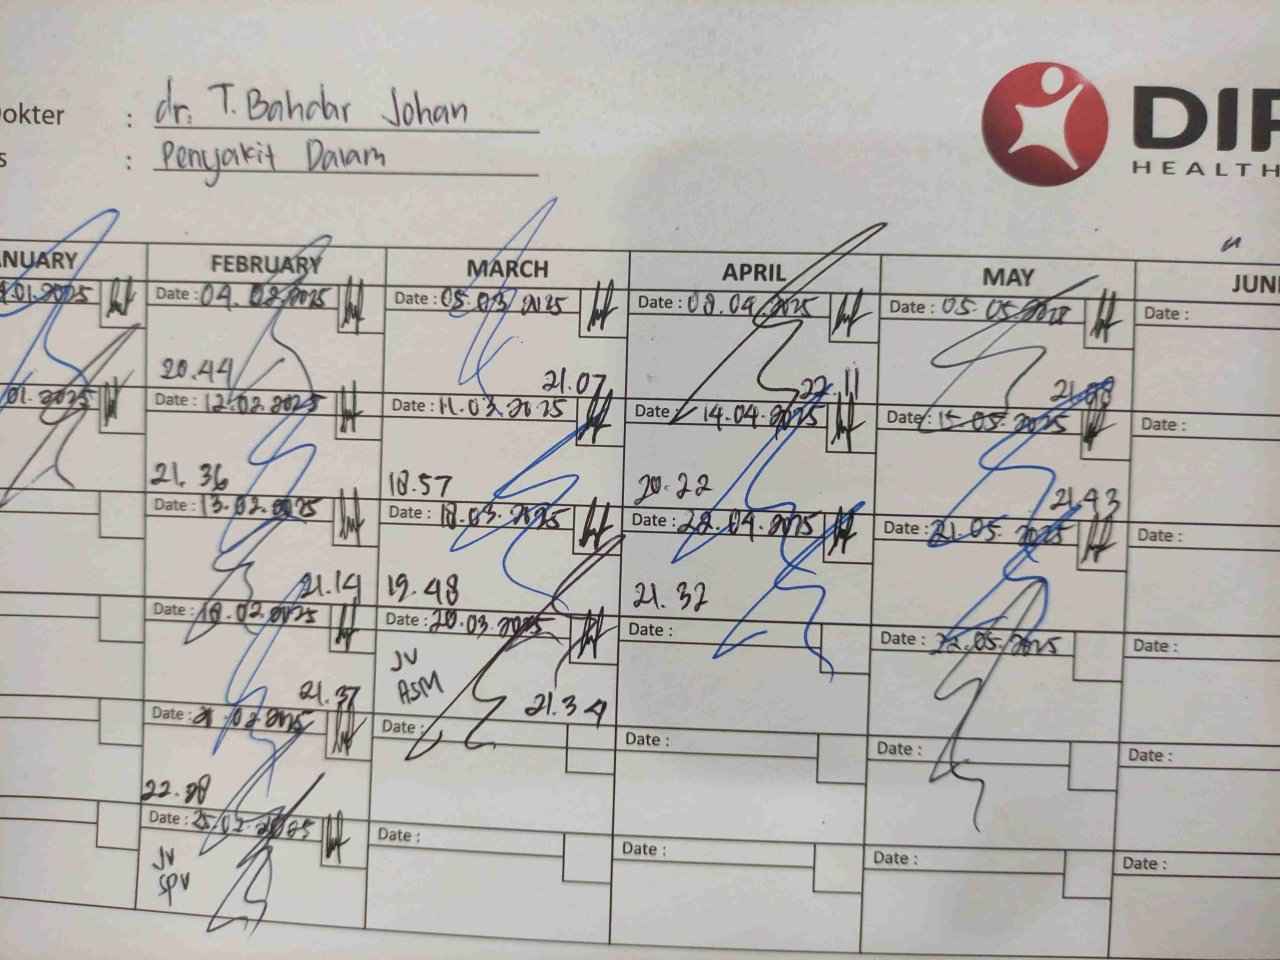 okter : dr. T. Bahdar Johan
s : Penyakit Dalam
DIP
HEALTH
NUARY FEBRUARY MARCH APRIL MAY JUNE
.01.2025 Date : 04.02.2025 Date : 05.03 2025 Date : 08.04.2025 Date : 05.05 Date :
20.44 21.07 22.11
01.2025 Date : 12.02.2025 Date : 11.03.2025 Date : 14.04.2025 Date : 15.05.2025 Date :
21.36 18.57 20.22 21.43
Date : 13.02.2025 Date : 18.03.2025 Date : 28.04.2025 Date : 21.05.2025 Date :
21.14 19.48 21.32
Date : 18.02.2025 Date : 20.03.2025 Date : Date : 22.05.2025 Date :
JV
ASM
21.37 21.34
Date : 21.02.2025 Date : Date : Date : Date :
22.28
Date : 25.02.2025 Date : Date : Date : Date :
JV
SPV